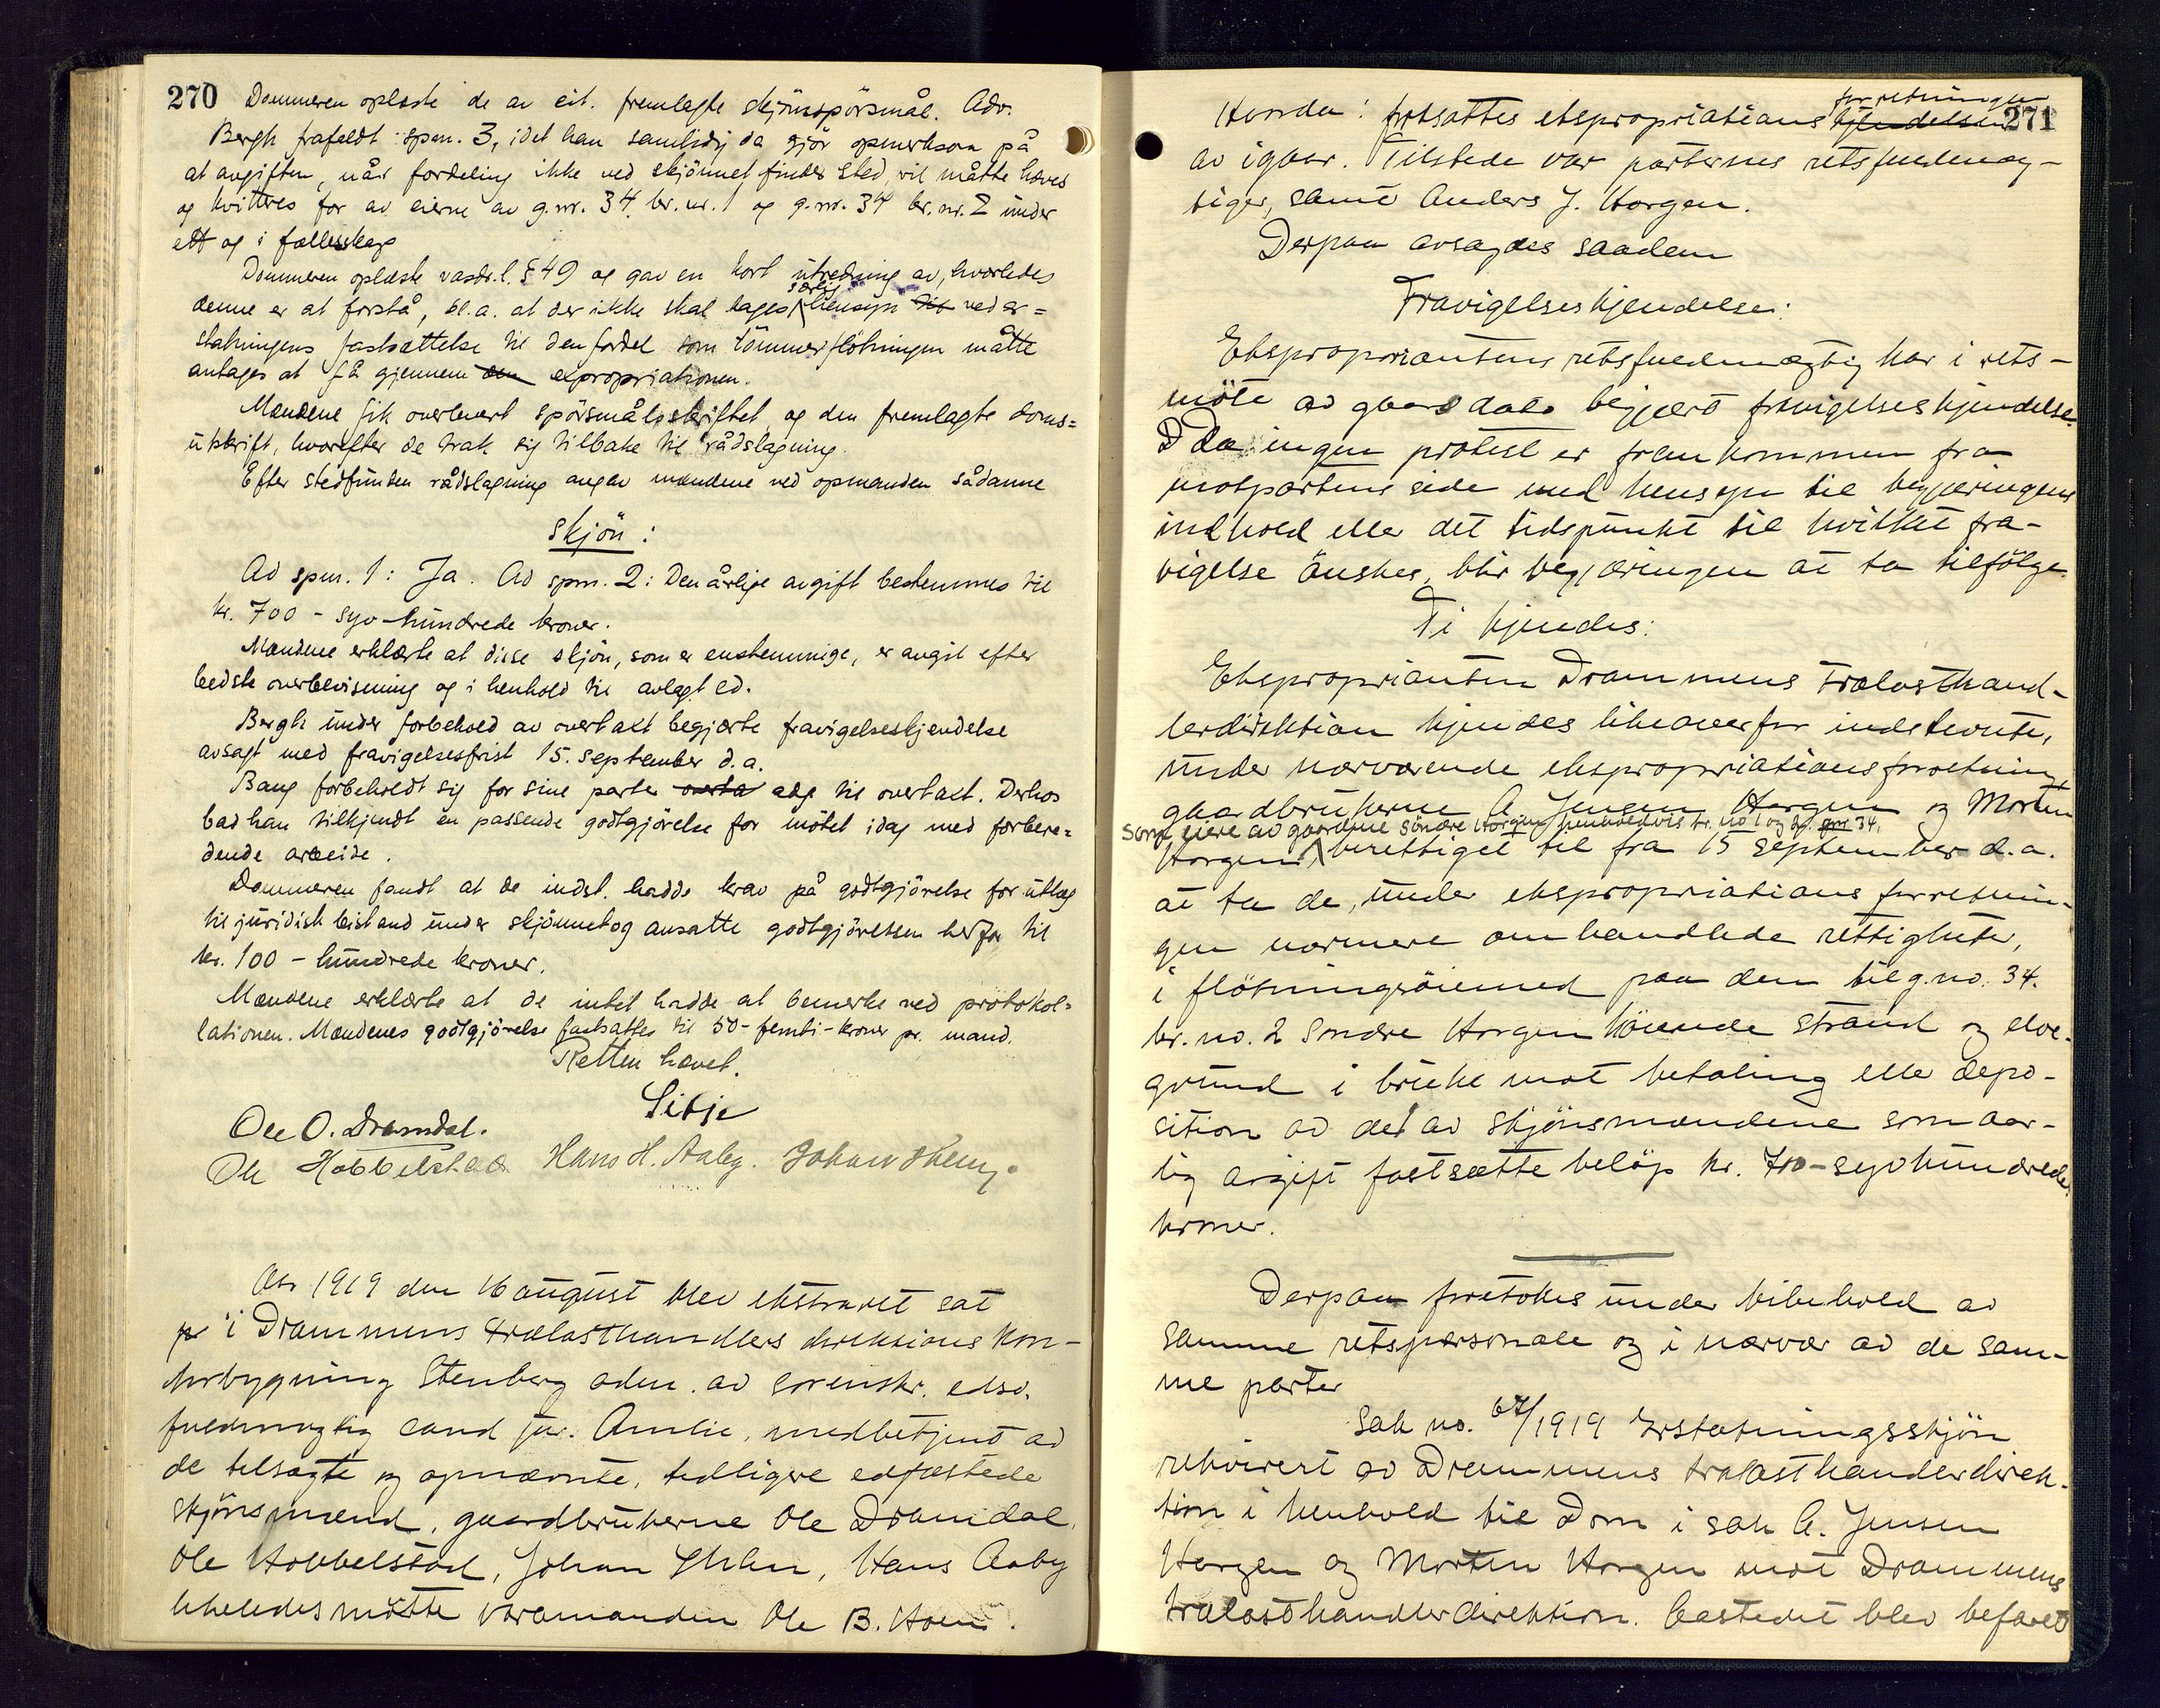 270 Dommeren oplæste de av cit. fremlagte skjönnspörsmål. Adv.
Bergh frafaldt spm. 3, idet han samtidig da gjör opmerksom på
at avgiften, når fordeling ikke ved skjönnet finder sted, vil måtte hæves
og kvitteres for av eierne av g.nr. 34, br.nr. 1 og g.nr. 34 br.nr. 2 under
ett og i fællesskap
Dommeren oplæste vasdr.l. § 49 og gav en kort utredning av, hvorledes
denne er at forstå, bl.a. at der ikke skal tages særlig hensyn til ved er=
statningens fastsættelse til den fordel som tömmerflötningen måtte
antages at få gjennem den expropriationen.
Mændene fik overlevert spörsmålsskriftet og den fremlagte doms=
utskrift, hvorefter de trak sig tilbake til rådslagning.
Efter stedfunden rådslagning avgav mændene ved opmanden sådanne
skjön:
Ad spm. 1: Ja. Ad spm. 2: Den årlige avgift bestemmes til
kr. 700 - syv-hundrede kroner.
Mændene erklærte at disse skjön, som er enstemmige, er avgit efter
bedste overbevisning og i henhold til avlagt ed.
Bergh under forbehold av overtakt begjærte fravigelseskjendelse
avsagt med fravigelsesfrist 15. september d.a.
Bang forbeholdt sig for sine parter overta adg. til overtakt. Derhos
bad han tilkjendt en passende godtgjörelse for mötet idag med forbere=
dende arbeide.
Dommeren fandt at de indst. hadde krav på godtgjörelse for utlæg
til juridisk bistand under skjönnet og ansatte godtgjörelsen herfor til
kr. 100 - hundrede kroner.
Mændene erklærte at de intet hadde at bemerke ved protokol=
lationen. Mændenes godtgjörelse fastsattes til 50 - femti - kroner pr. mand.
Retten hævet.
Sitje
Ole O. Dramdal.
Ole Hobbelstad Hans H. Aaby. Johan
Aar 1919 den 16 august blev ekstraret sat
i Drammens trælasthandlers direktions kon-
torbygning Stenberg adm. av sorenskr. edsv.
fuldmægtig cand jur. Amlie, medbetjent av
de tilsagte og opnævnte, tidligere edfæstede
skjönsmænd, gaardbrukerne Ole Dramdal,
Ole Hobbelstad, Johan, Hans Aaby
likeledes mötte varamanden Ole B. Hoen.
271
Hvorda: fortsattes ekspropriations kjendelsen forretningen
av igaar. Tilstede var parternes retsfuldmæg-
tiger, samt Anders J. Horgen.
Derpaa avsagdes saaden
Fravigelseskjendelse:
Ekspropriantens retsfuldmægtig har i rets-
möte av gaars dato begjært fravigelseskjendelse.
Da ingen protest er fremkommen fra
motpartens side med hensyn til begjæringens
indhold eller det tidspunkt til hvilket fra-
vigelse önskes, blir begjæringen at ta tilfölge.
Ti kjendes:
Eksproprianten Drammens Trælasthand-
lerdirektion kjendes likeoverfor indstevnte,
under nærværende ekspropriationsforretning,
gaardbrukerne A. Jensen Horgen og Morten
som eiere av gaardene söndre Horgen henholdsvis br. no 1 og 2, gnr 34,
Horgen berettiget til fra 15 september d.a.
at ta de, under ekspropriations forretnin-
gen nærmere omhandlede rettigheter,
i flötningsöiemed paa den til g.no. 34.
br. no. 2 Söndre Horgen hörende strand og elve-
grund i bruk mot betaling eller depo-
sition av det av skjönsmændene som aar-
lig avgift fastsatte belöp kr. 700 - syvhundrede
kroner.
Derpaa foretokes under bibehold av
samme retspersonale og i nærvær av de sam-
me parter
Sak no. 67/1919 Erstatningsskjön
rekvirert av Drammens trælasthandlerdirek-
tion i henhold til Dom i sak A. Jensen
Horgen og Morten Horgen mot Drammens
trælasthandlerdirektion. Aastedet blev befaret